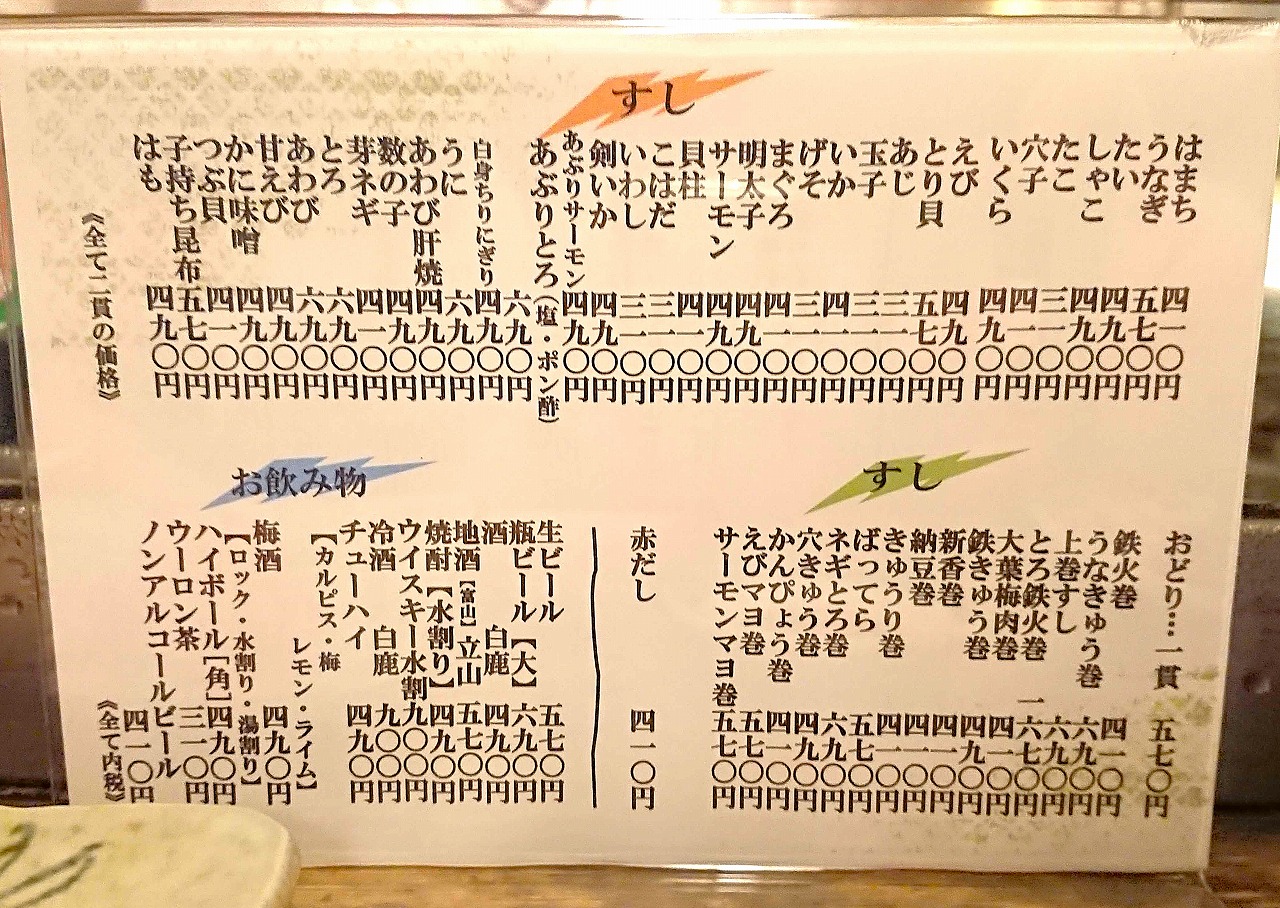 すし
はまち 四一〇円
うなぎ 五七〇円
たい 四九〇円
しゃこ 四九〇円
たこ 三一〇円
穴子 四一〇円
いくら 四九〇円
えび 四九〇円
とり貝 五七〇円
あじ 三一〇円
玉子 三一〇円
いか 四一〇円
げそ 三一〇円
まぐろ 四一〇円
明太子 四九〇円
サーモン 四九〇円
貝柱 四一〇円
こはだ 三一〇円
いわし 三一〇円
剣いか 四九〇円
あぶりサーモン 四九〇円
あぶりとろ(塩・ポン酢) 六九〇円
白身ちりにぎり 四九〇円
うに 六九〇円
あわび肝焼 四九〇円
数の子 四九〇円
芽ネギ 四一〇円
とろ 六九〇円
あわび 六九〇円
甘えび 四九〇円
かに味噌 四九〇円
つぶ貝 四一〇円
子持ち昆布 五七〇円
はも 四九〇円
《全て二貫の価格》
すし
おどり…一貫 五七〇円
鉄火巻 四一〇円
うなきゅう巻 六九〇円
上巻すし 六九〇円
とろ鉄火巻 一六七〇円
大葉梅肉巻 四一〇円
鉄きゅう巻 四九〇円
新香巻 四一〇円
納豆巻 四一〇円
きゅうり巻 四一〇円
ばってら 五七〇円
ネギとろ巻 六九〇円
穴きゅう巻 四九〇円
かんぴょう巻 四一〇円
えびマヨ巻 五七〇円
サーモンマヨ巻 五七〇円
赤だし 四一〇円
お飲み物
生ビール 五七〇円
瓶ビール【大】 六九〇円
酒 白鹿 四九〇円
地酒【富山】立山 五七〇円
焼酎【水割り】 四九〇円
ウイスキー水割 九〇〇円
冷酒 白鹿 九〇〇円
チューハイ 四九〇円
【カルピス・梅
レモン・ライム】
梅酒 四九〇円
【ロック・水割り・湯割り】
ハイボール[角] 四九〇円
ウーロン茶 三一〇円
ノンアルコールビール 四一〇円
《全て内税》